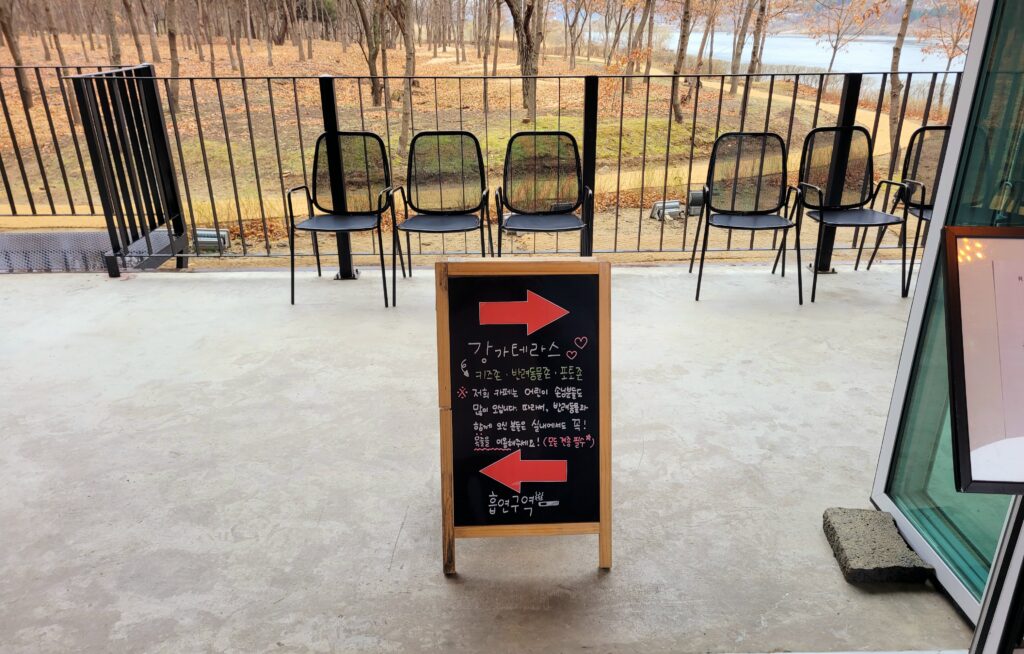 강가테라스
키즈존 · 반려동물존 · 포토존
※ 저희 카페는 어린이 손님분들도
많이 오십니다. 따라서, 반려동물과
함께 오신 분들은 실내에서도 꼭!
목줄을 이용해주세요! (모든 견종 필수*)
흡연구역